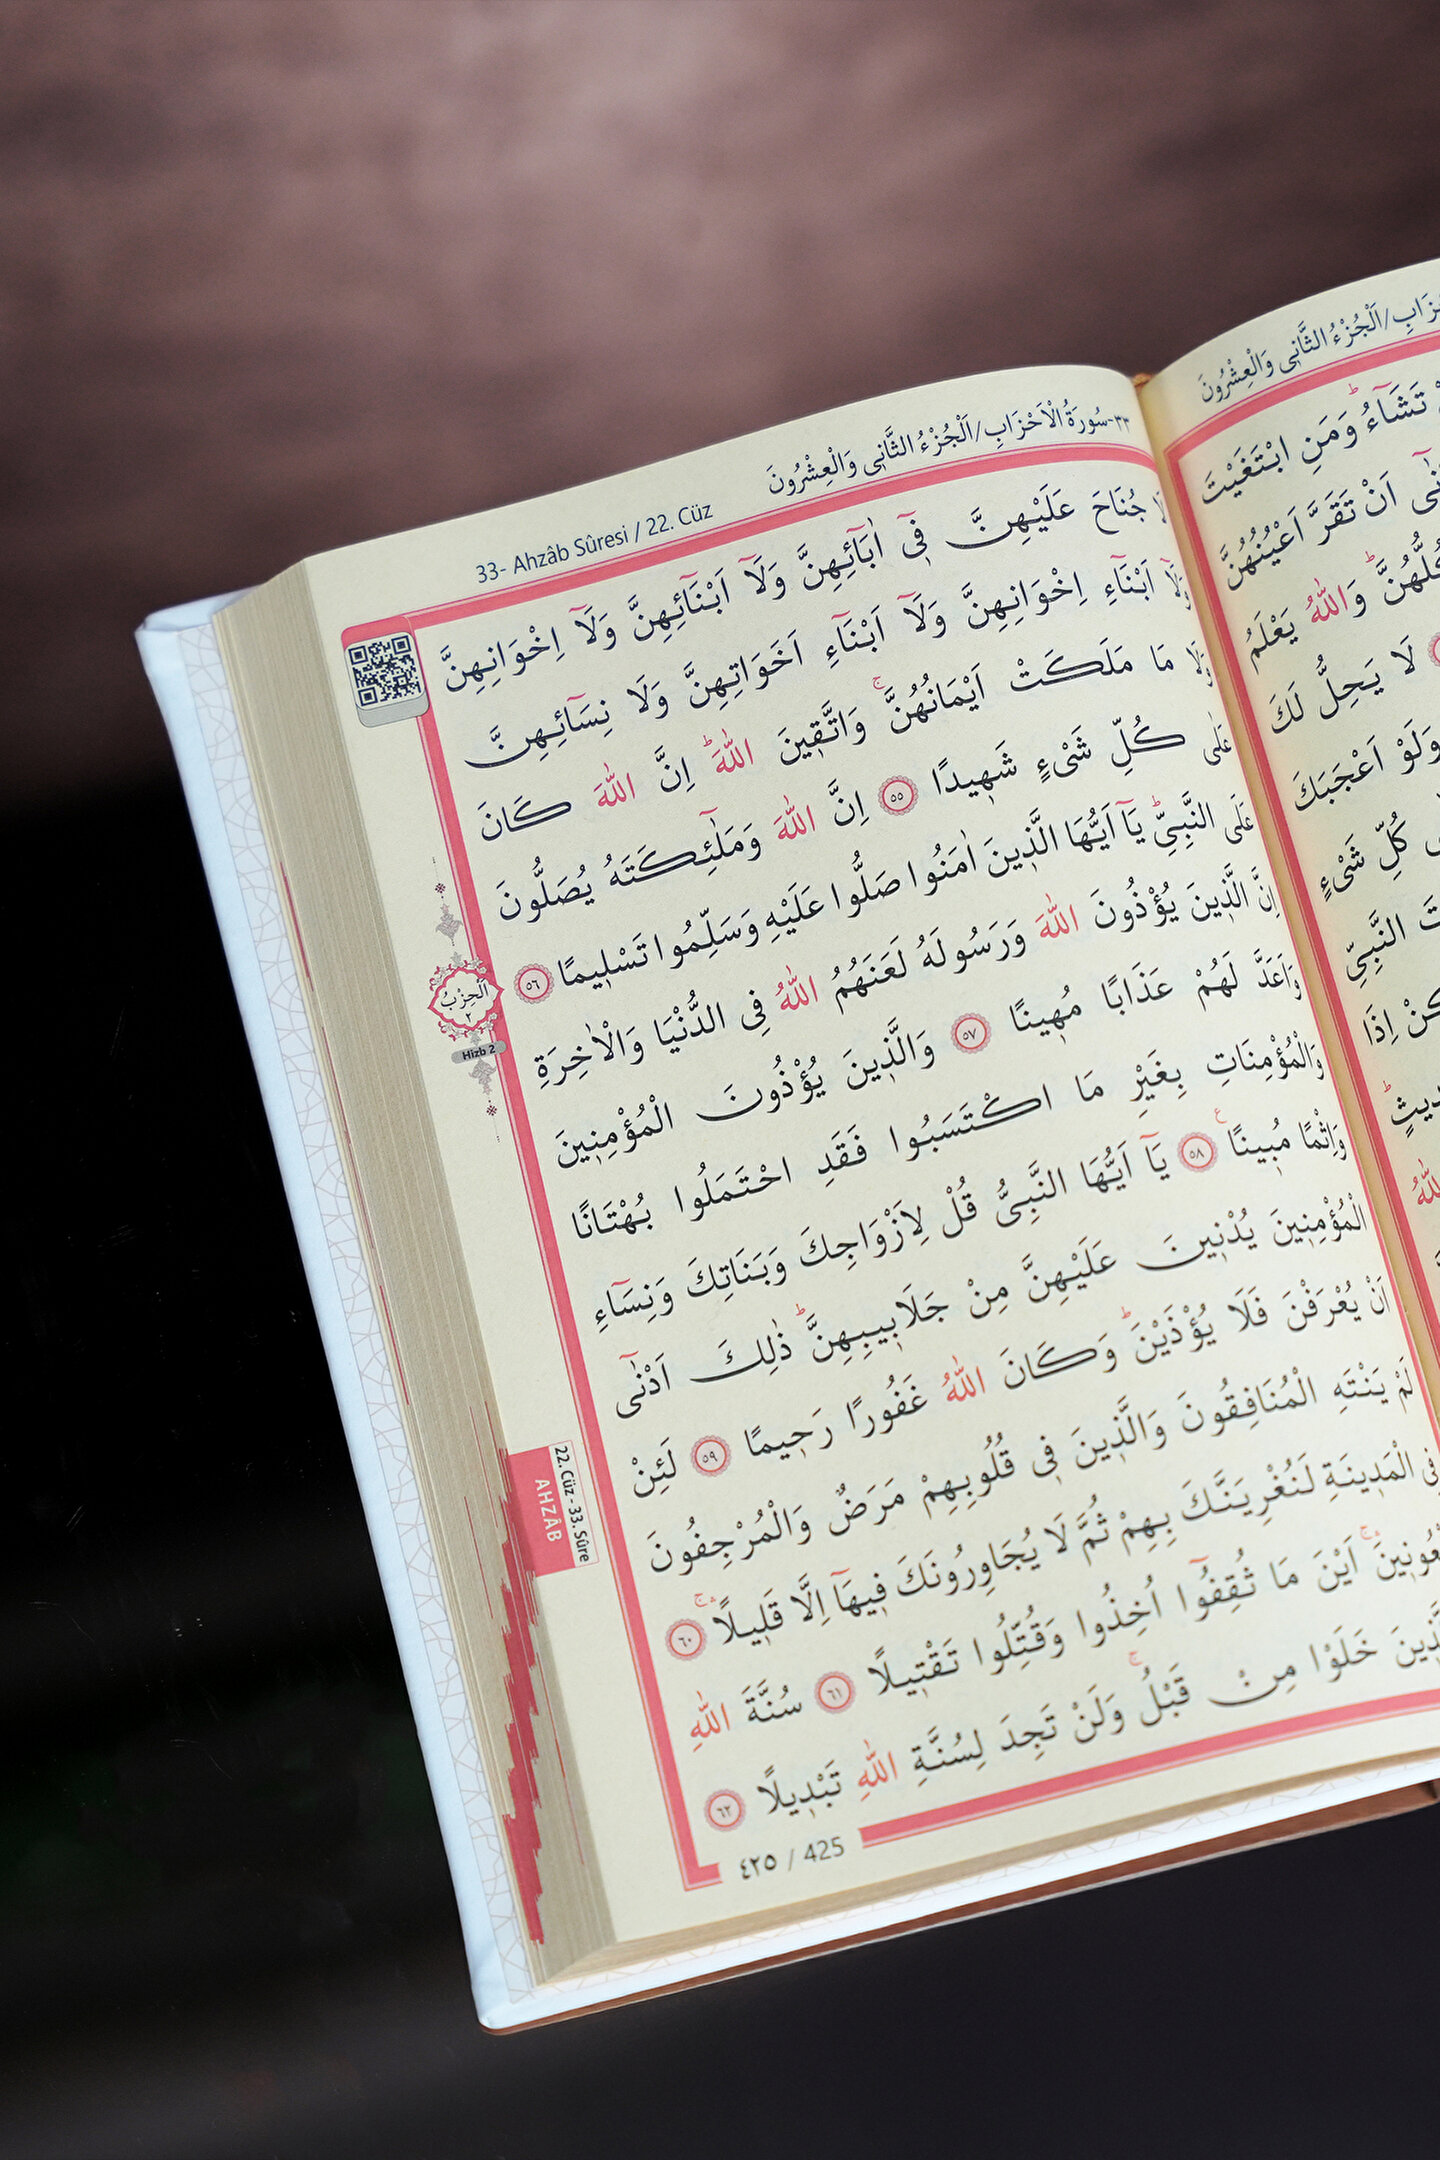 33- Ahzâb Sûresi / 22. Cüz
٣٣-سُورَةُ الْاَحْزَابِ/اَلْجُزْءُ الثَّانٖى وَالْعِشْرُونَ
لَا جُنَاحَ عَلَيْهِنَّ فٖٓى اٰبَٓائِهِنَّ وَلَٓا اَبْنَٓائِهِنَّ وَلَٓا اِخْوَانِهِنَّ
وَلَٓا اَبْنَٓاءِ اِخْوَانِهِنَّ وَلَٓا اَبْنَٓاءِ اَخَوَاتِهِنَّ وَلَا نِسَٓائِهِنَّ
وَلَا مَا مَلَكَتْ اَيْمَانُهُنَّۚ وَاتَّقٖينَ اللّٰهَؕ اِنَّ اللّٰهَ كَانَ
عَلٰى كُلِّ شَىْءٍ شَهٖيدًا ﴿٥٥﴾ اِنَّ اللّٰهَ وَمَلٰٓئِكَتَهُ يُصَلُّونَ
عَلَى النَّبِىِّؕ يَٓا اَيُّهَا الَّذٖينَ اٰمَنُوا صَلُّوا عَلَيْهِ وَسَلِّمُوا تَسْلٖيمًا ﴿٥٦﴾
اِنَّ الَّذٖينَ يُؤْذُونَ اللّٰهَ وَرَسُولَهُ لَعَنَهُمُ اللّٰهُ فِى الدُّنْيَا وَالْاٰخِرَةِ
وَاَعَدَّ لَهُمْ عَذَابًا مُهٖينًا ﴿٥٧﴾ وَالَّذٖينَ يُؤْذُونَ الْمُؤْمِنٖينَ
وَالْمُؤْمِنَاتِ بِغَيْرِ مَا اكْتَسَبُوا فَقَدِ احْتَمَلُوا بُهْتَانًا
وَاِثْمًا مُبٖينًا ع ﴿٥٨﴾ يَٓا اَيُّهَا النَّبِىُّ قُلْ لِاَزْوَاجِكَ وَبَنَاتِكَ وَنِسَٓاءِ
الْمُؤْمِنٖينَ يُدْنٖينَ عَلَيْهِنَّ مِنْ جَلَابٖيبِهِنَّؕ ذٰلِكَ اَدْنٰٓى
اَنْ يُعْرَفْنَ فَلَا يُؤْذَيْنَؕ وَكَانَ اللّٰهُ غَفُورًا رَحٖيمًا ﴿٥٩﴾ لَئِنْ
لَمْ يَنْتَهِ الْمُنَافِقُونَ وَالَّذٖينَ فٖى قُلُوبِهِمْ مَرَضٌ وَالْمُرْجِفُونَ
فِى الْمَدٖينَةِ لَنُغْرِيَنَّكَ بِهِمْ ثُمَّ لَا يُجَاوِرُونَكَ فٖيهَٓا اِلَّا قَلٖيلًاۛۚ ﴿٦٠﴾
اَيْنَ مَا ثُقِفُٓوا اُخِذُوا وَقُتِّلُوا تَقْتٖيلًا ﴿٦١﴾ سُنَّةَ اللّٰهِ
خَلَوْا مِنْ قَبْلُۚ وَلَنْ تَجِدَ لِسُنَّةِ اللّٰهِ تَبْدٖيلًا ﴿٦٢﴾
٤٢٥ / 425
اَلْحِزْبُ
٢
Hizb 2
22. Cüz - 33. Sûre
AHZÂB
اَلْجُزْءُ الثَّانٖى وَالْعِشْرُونَ
تَشَٓاءُؕ وَمَنِ ابْتَغَيْتَ
اَنْ تَقَرَّ اَعْيُنُهُنَّ
وَاللّٰهُ يَعْلَمُ
لَا يَحِلُّ لَكَ
وَلَوْ اَعْجَبَكَ
كُلِّ شَىْءٍ
النَّبِىِّ
اِذَا